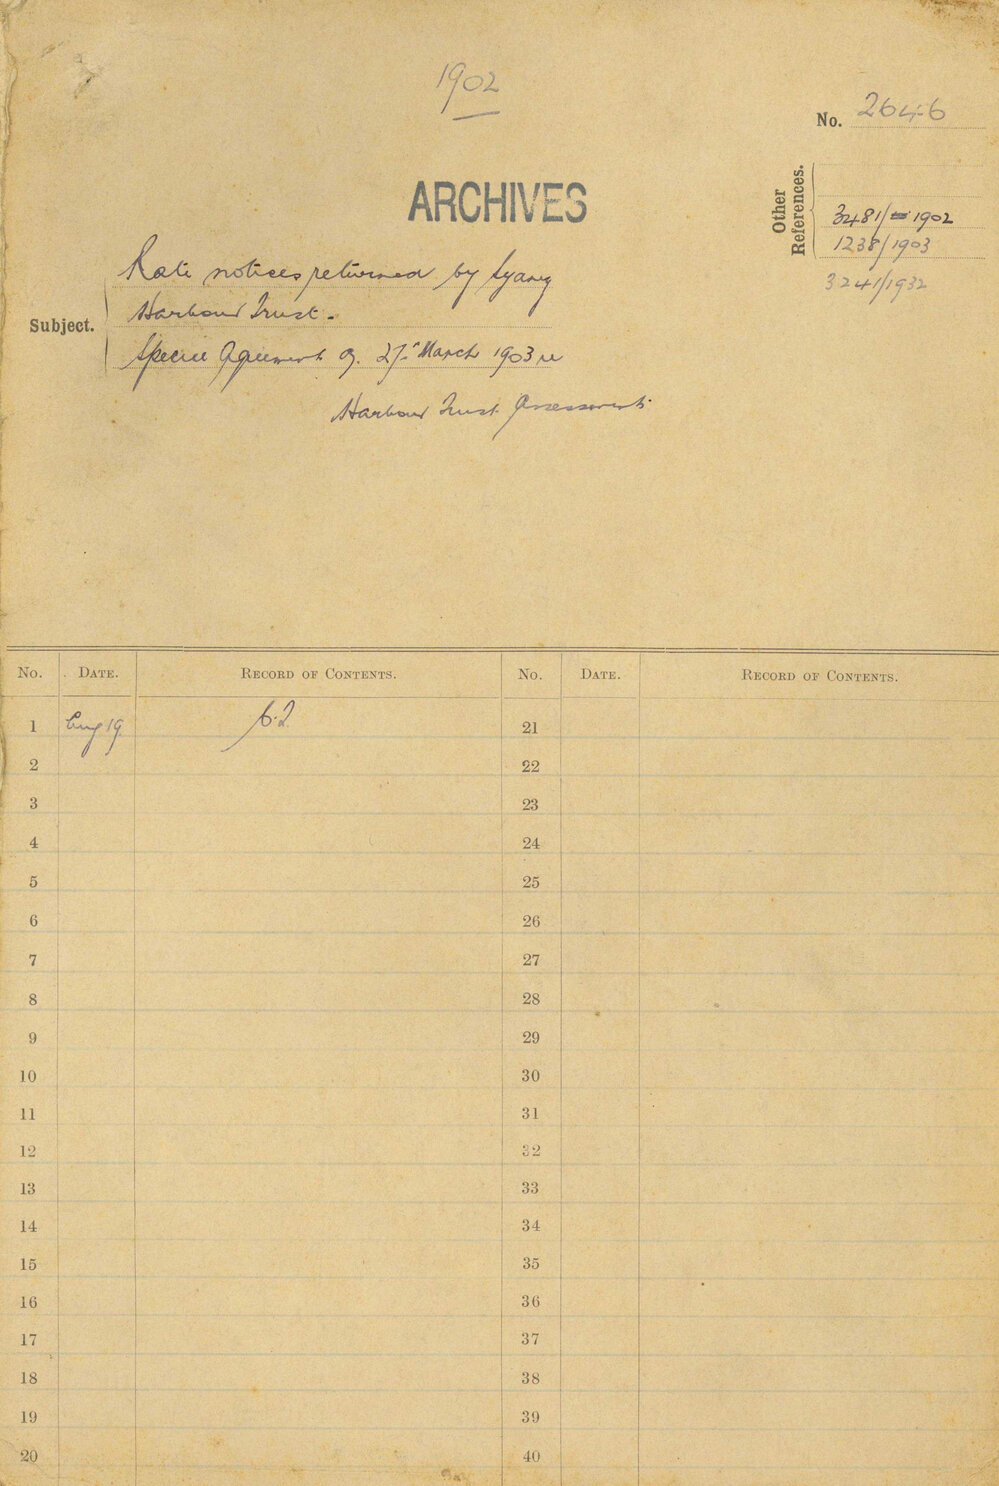 1902
No. 2646
ARCHIVES
Other
References.
3481/1902
1238/1903
3241/1932
Subject.
Rate notices returned by Sydney
Harbour Trust.
Special Agreement of 27th March 1903 re
Harbour Trust Assessments
No. DATE. RECORD OF CONTENTS. No. DATE. RECORD OF CONTENTS.
1 Aug 19 21
2 22
3 23
4 24
5 25
6 26
7 27
8 28
9 29
10 30
11 31
12 32
13 33
14 34
15 35
16 36
17 37
18 38
19 39
20 40